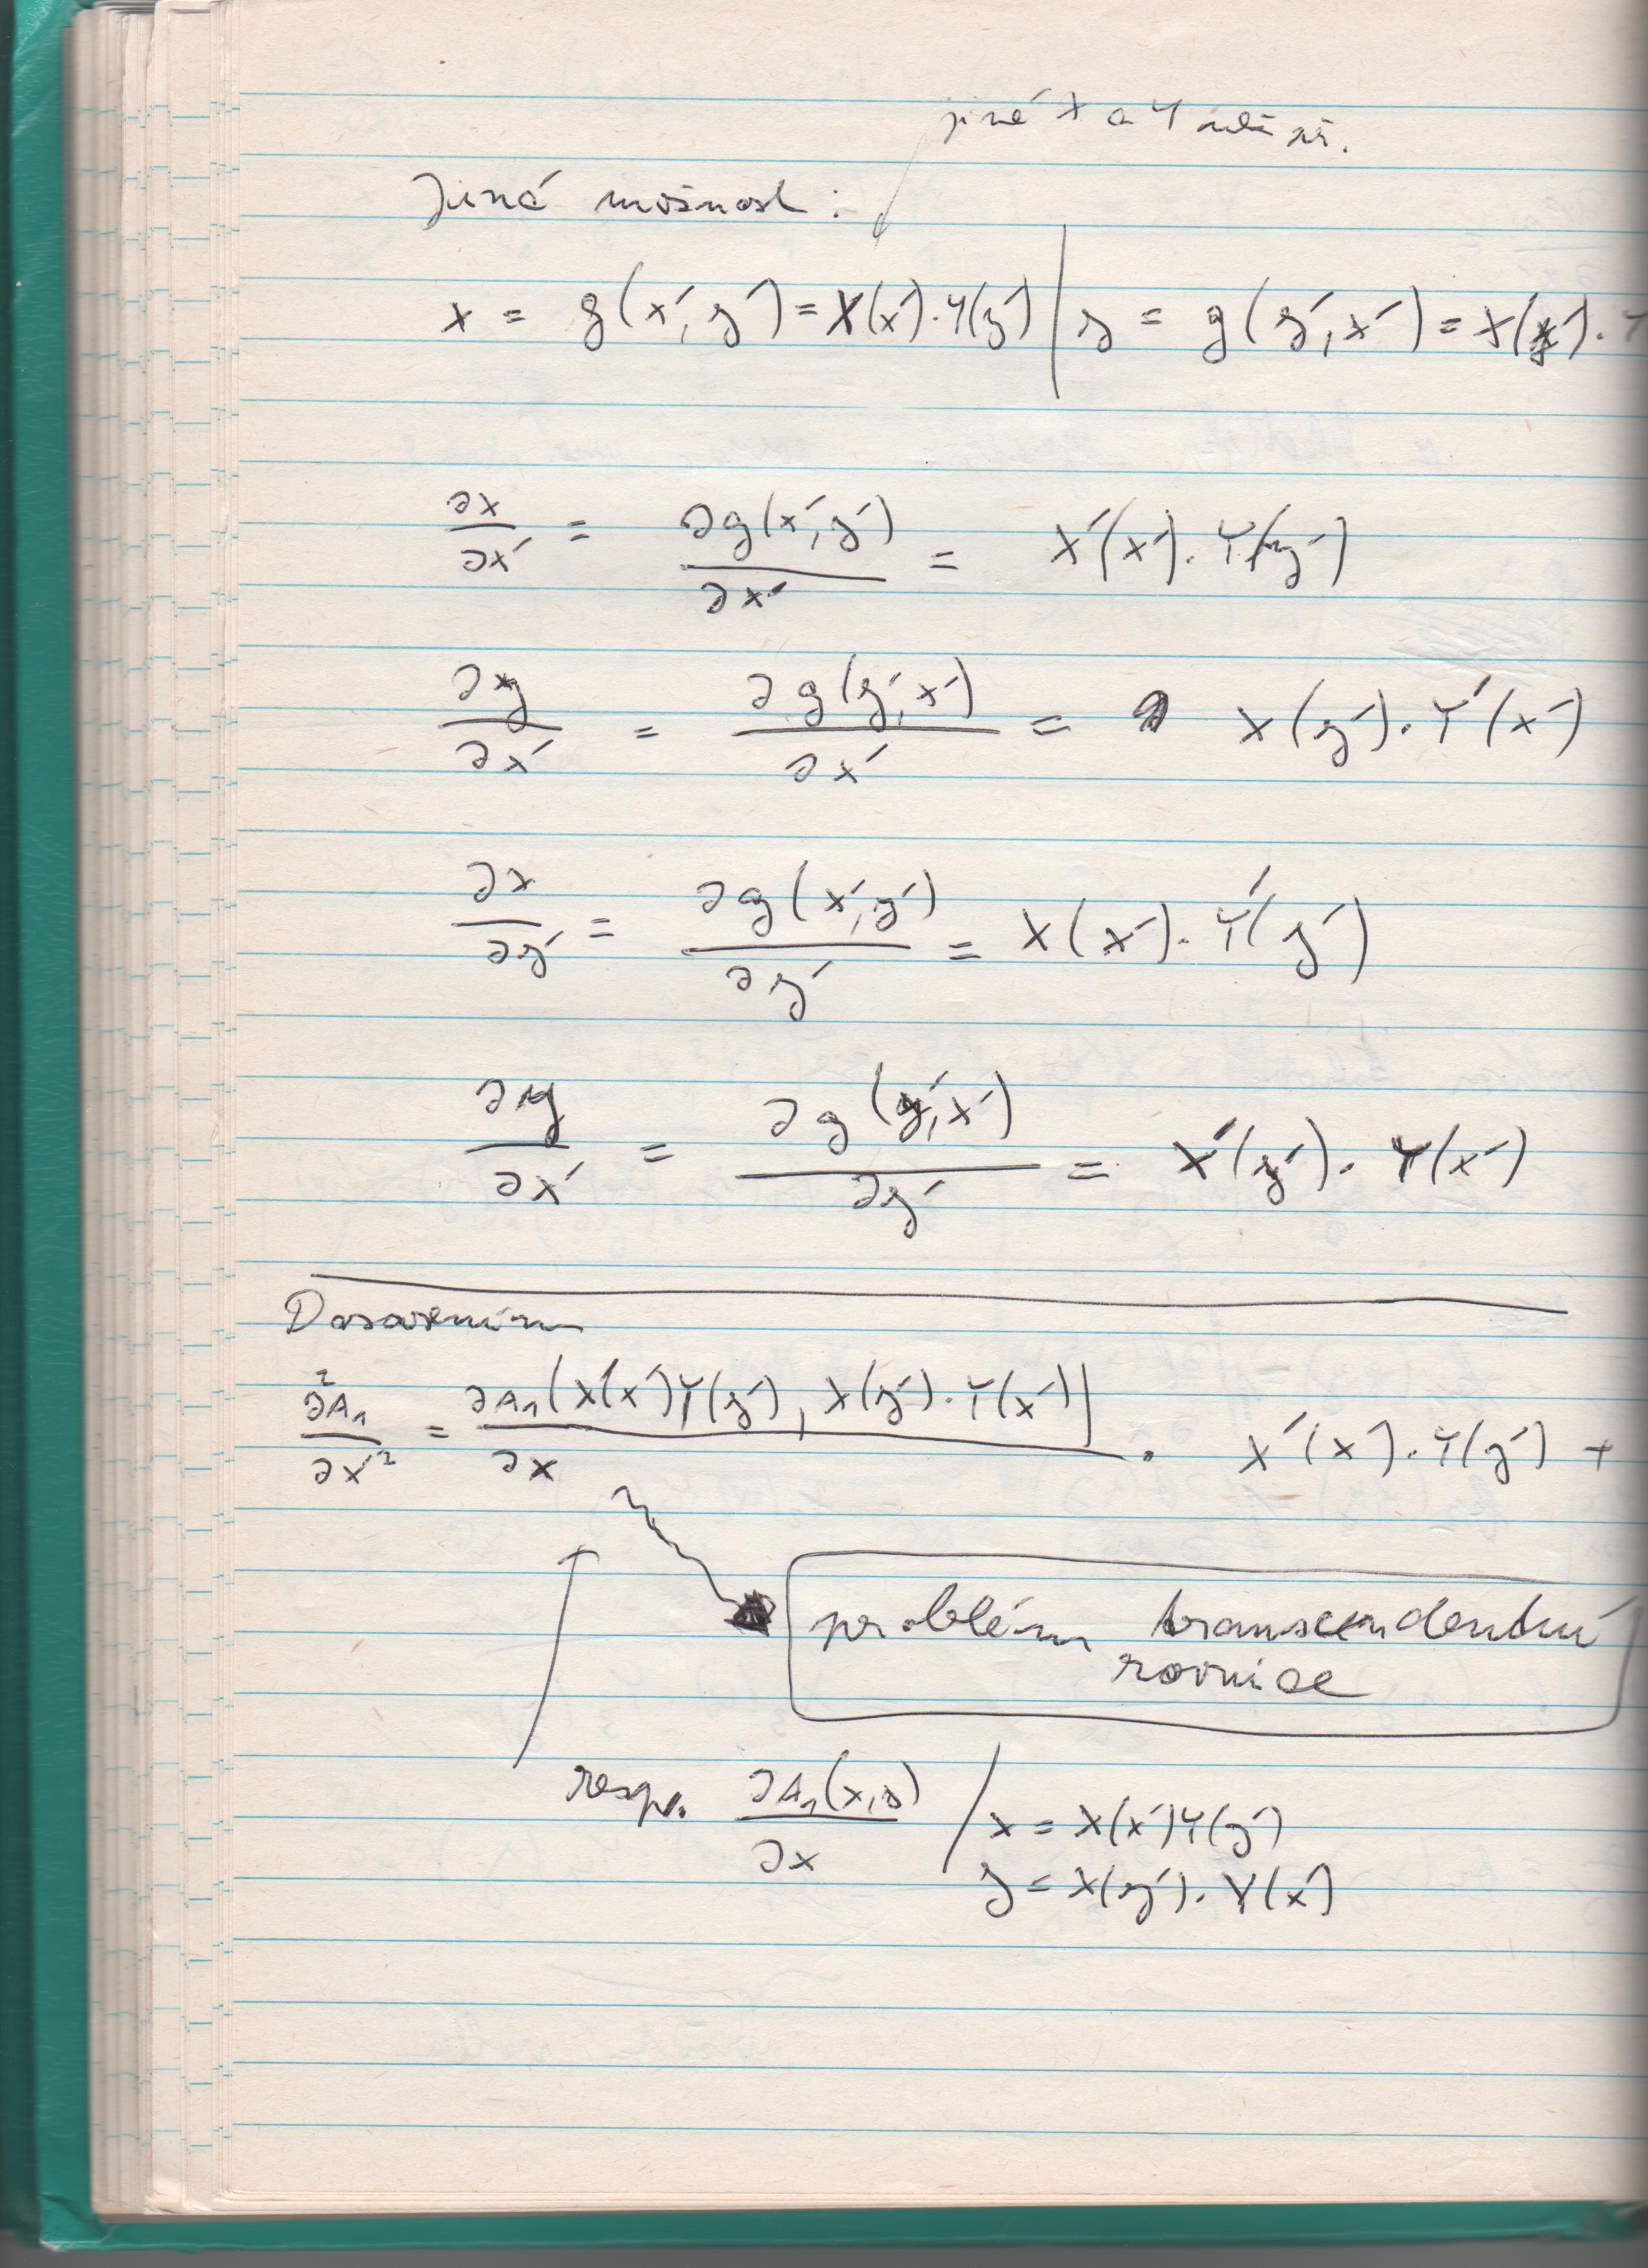 jiné X a Y než
Jiná možnost:
x = g(x',y') = X(x').Y(y') | y = g(y',x') = X(y').Y
∂x/∂x' = ∂g(x',y')/∂x' = X'(x').Y(y')
∂y/∂x' = ∂g(y',x')/∂x' = X(y').Y'(x')
∂x/∂y' = ∂g(x',y')/∂y' = X(x').Y'(y')
∂y/∂x' = ∂g(y',x')/∂y' = X'(y').Y(x')
Dosazením
∂²A₁/∂x'² = ∂A₁(X(x')Y(y'), X(y').Y(x'))/∂x . X'(x').Y(y') +
problém transcendentní
rovnice
resp. ∂A₁(x,y)/∂x / x = X(x')Y(y')
y = X(y').Y(x')